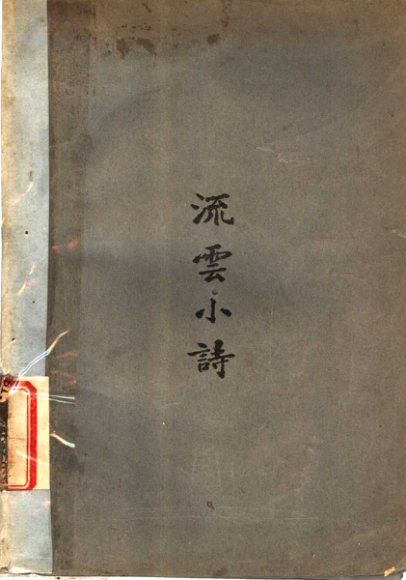 流雲小詩